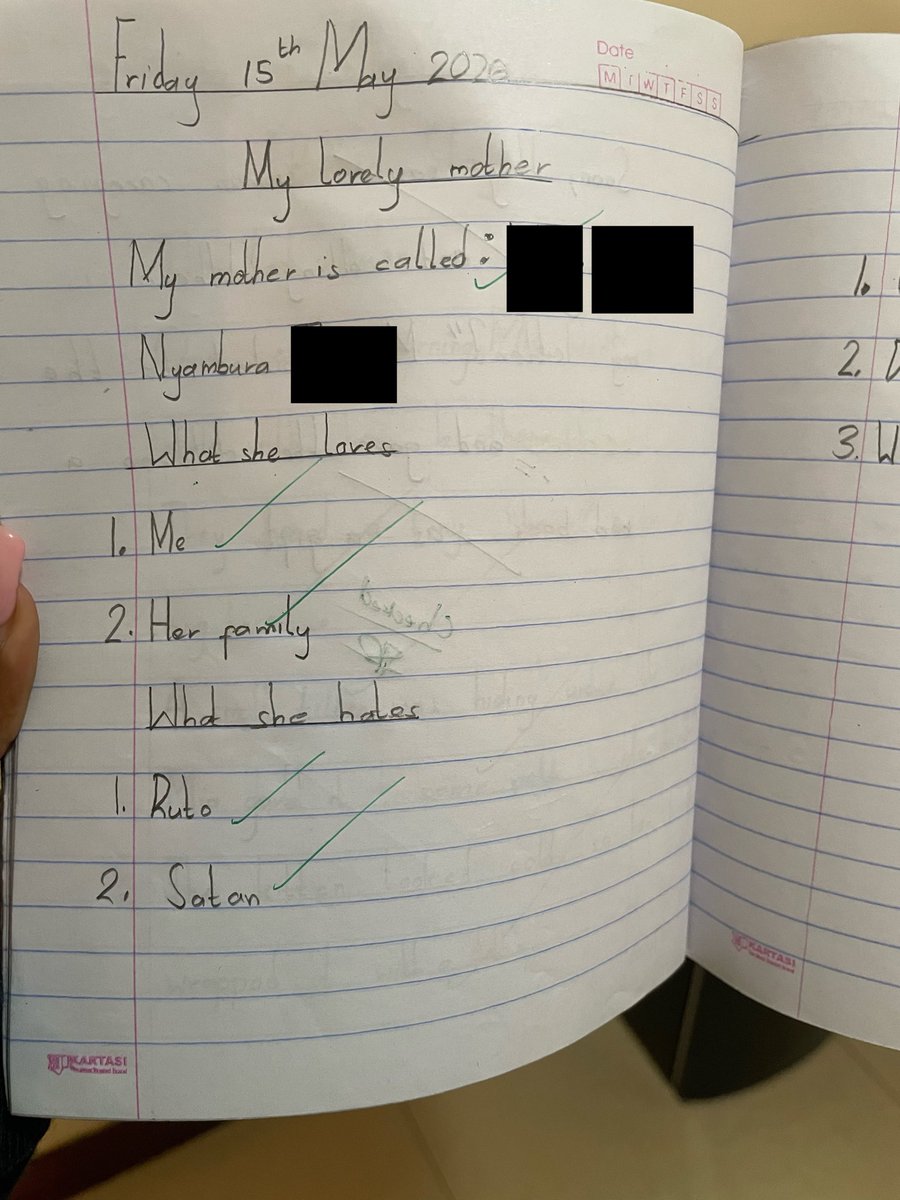 Friday 15th May 2026
Date
M T W T F S S
My lovely mother
My mother is called:
Nyambura
What she loves
1. Me
2. Her family
checked
What she hates
1. Ruto
2. Satan
KARTASI
1.
2.
3. W
KARTASI